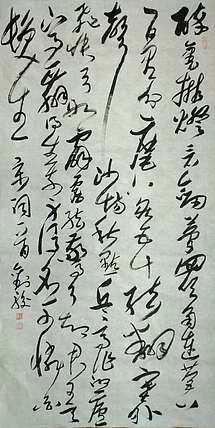 醉里挑燈看劍夢回吹角連營八
百里分麾下炙五十弦翻塞外
聲沙場秋點兵馬作的盧
飛快弓如霹靂弦驚了却君王天
下事贏得生前身後名可憐白
髮生宋詞一首